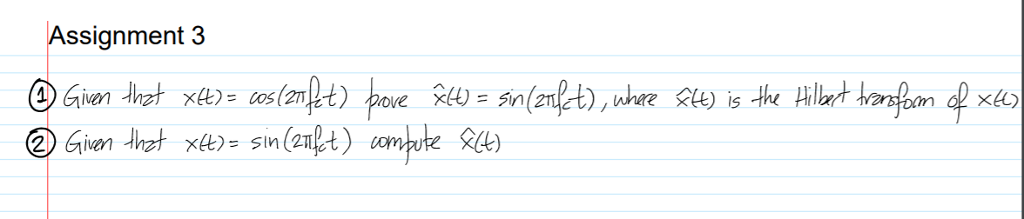 Assignment 3
① Given that x(t) = cos(2πf_ct) prove x̂(t) = sin(2πf_ct), where x̂(t) is the Hilbert transform of x(t)
② Given that x(t) = sin(2πf_ct) compute x̂(t)